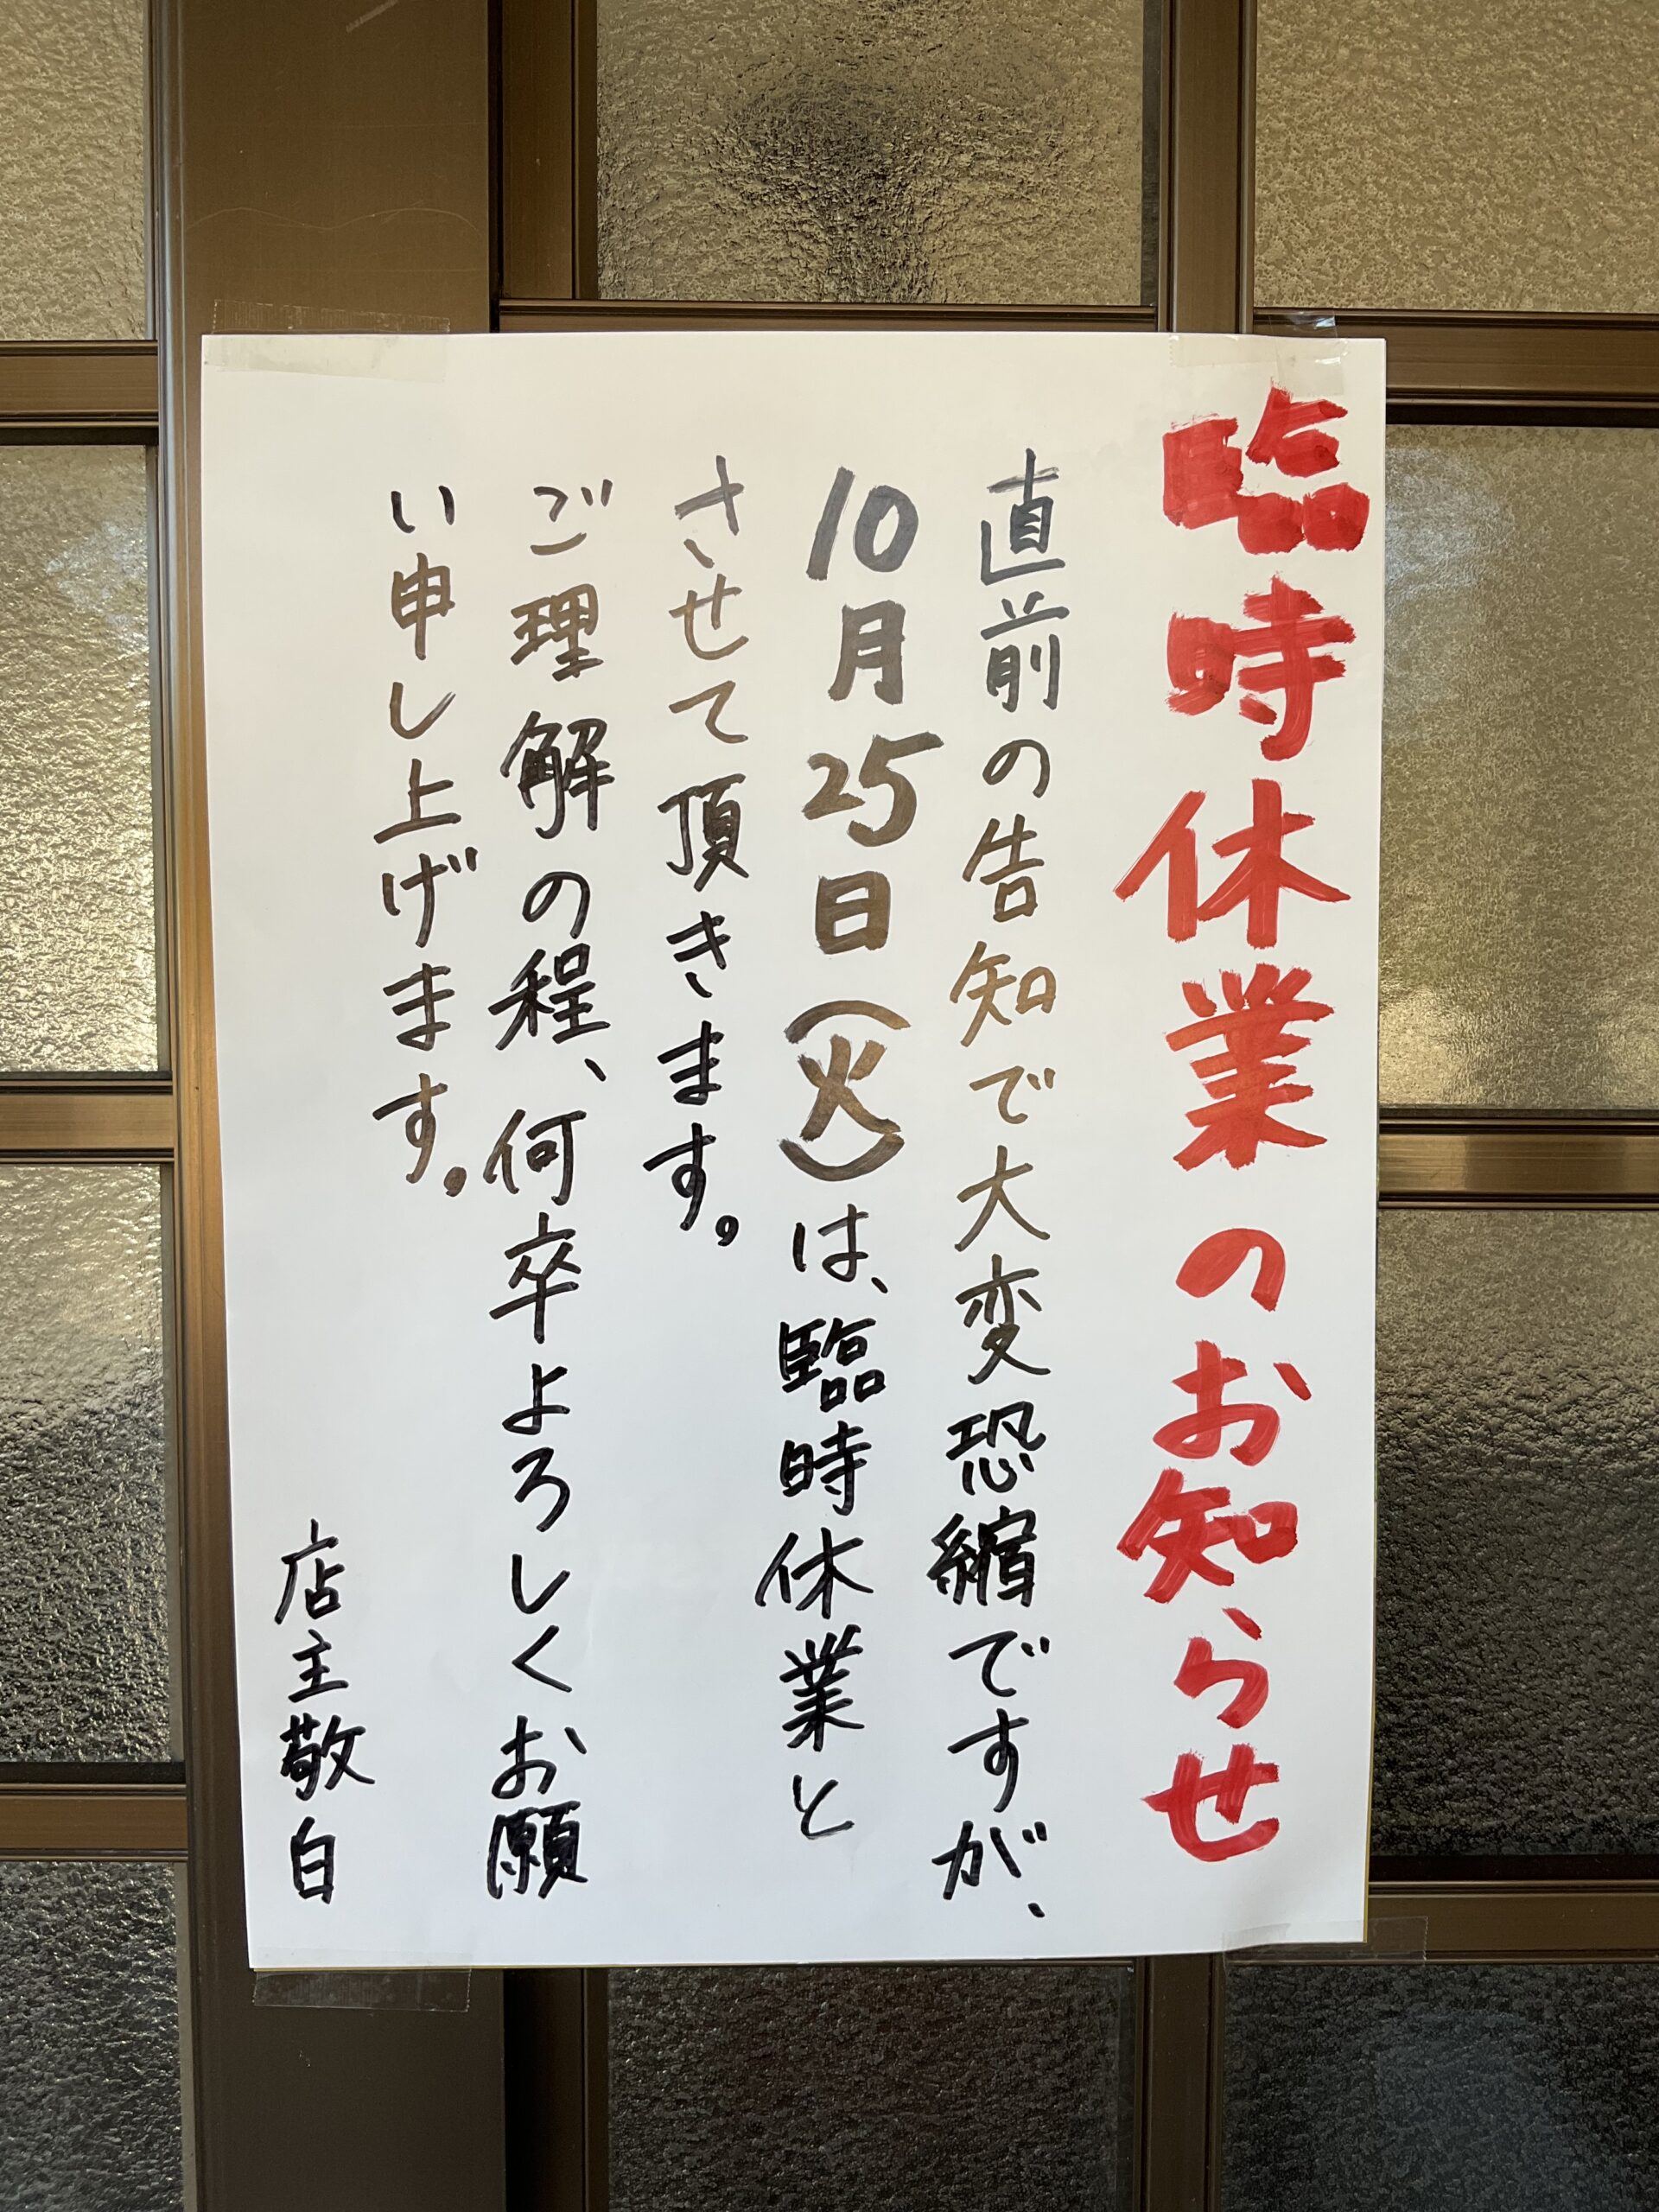 臨時休業のお知らせ
直前の告知で大変恐縮ですが、
10月25日(火)は、臨時休業と
させて頂きます。
ご理解の程、何卒よろしくお願
い申し上げます。
店主敬白